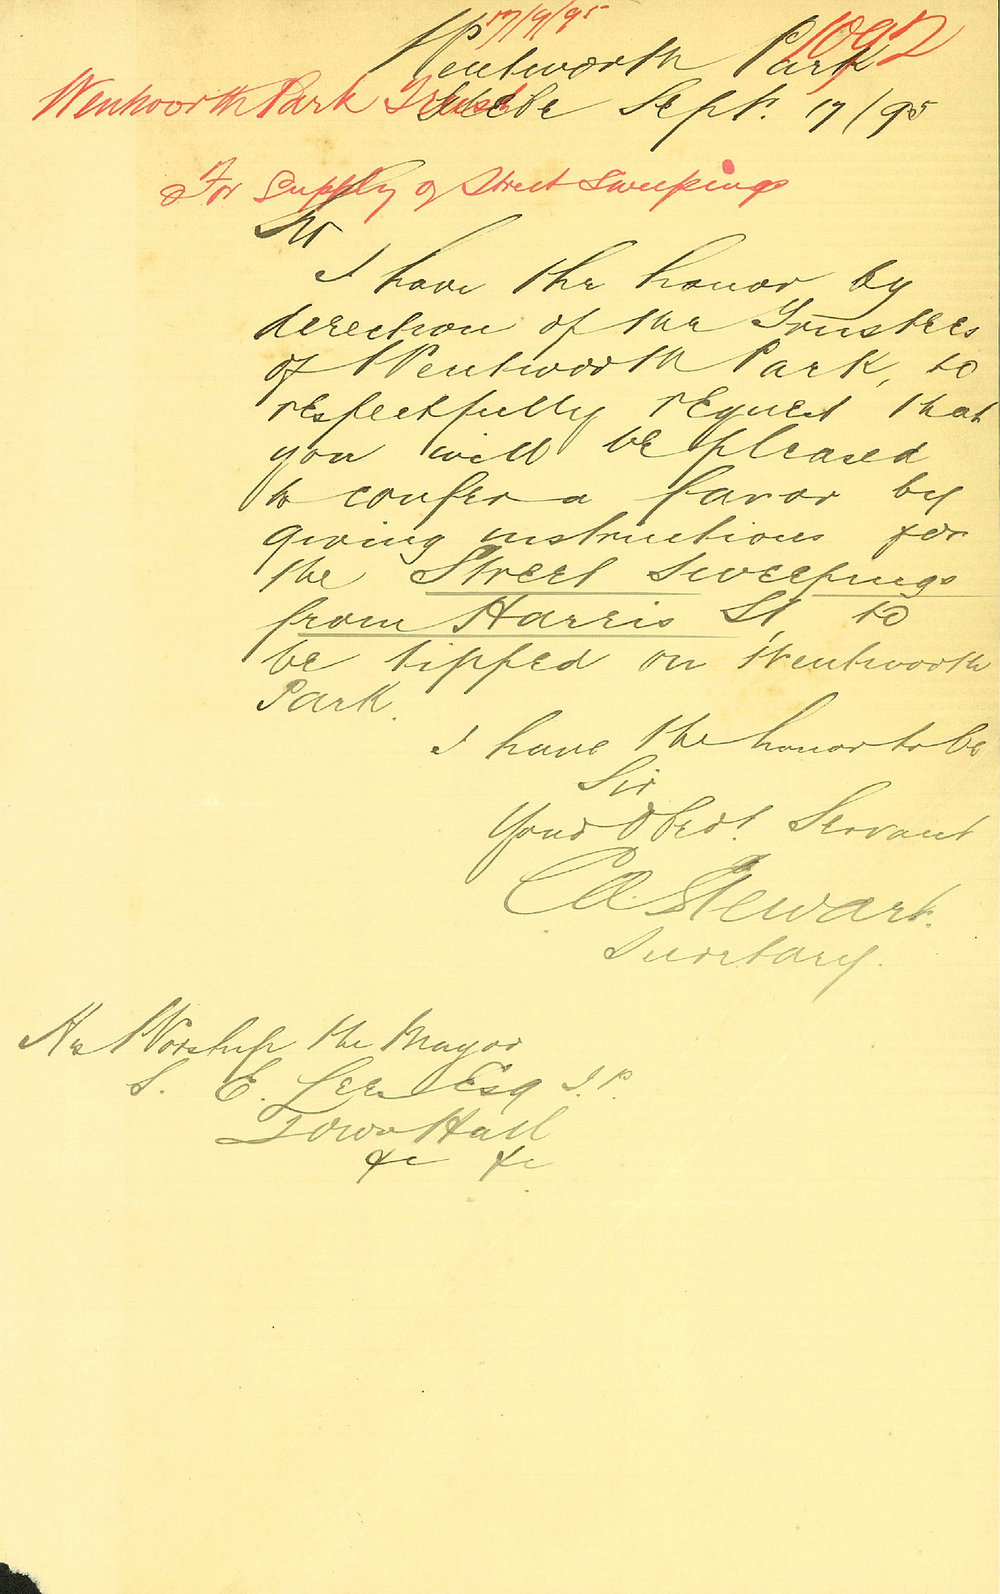 17/9/95
1092
Wentworth Park
Wentworth Park Trust
Glebe Sept. 17/95
For Supply of Street Sweepings
Sir
I have the honor by
derection of the Trustees
of Wentworth Park, to
respectfully request that
you will be pleased
to confer a favor by
giving instructions for
the Street Sweepings
from Harris St, to
be tipped on Wentworth
Park.
I have the honor to be
Sir
Your Obedt. Servant
C A Stewart.
Secretary.
His Worship the Mayor
S. E. Lees Esq J.P.
Town Hall
&c &c